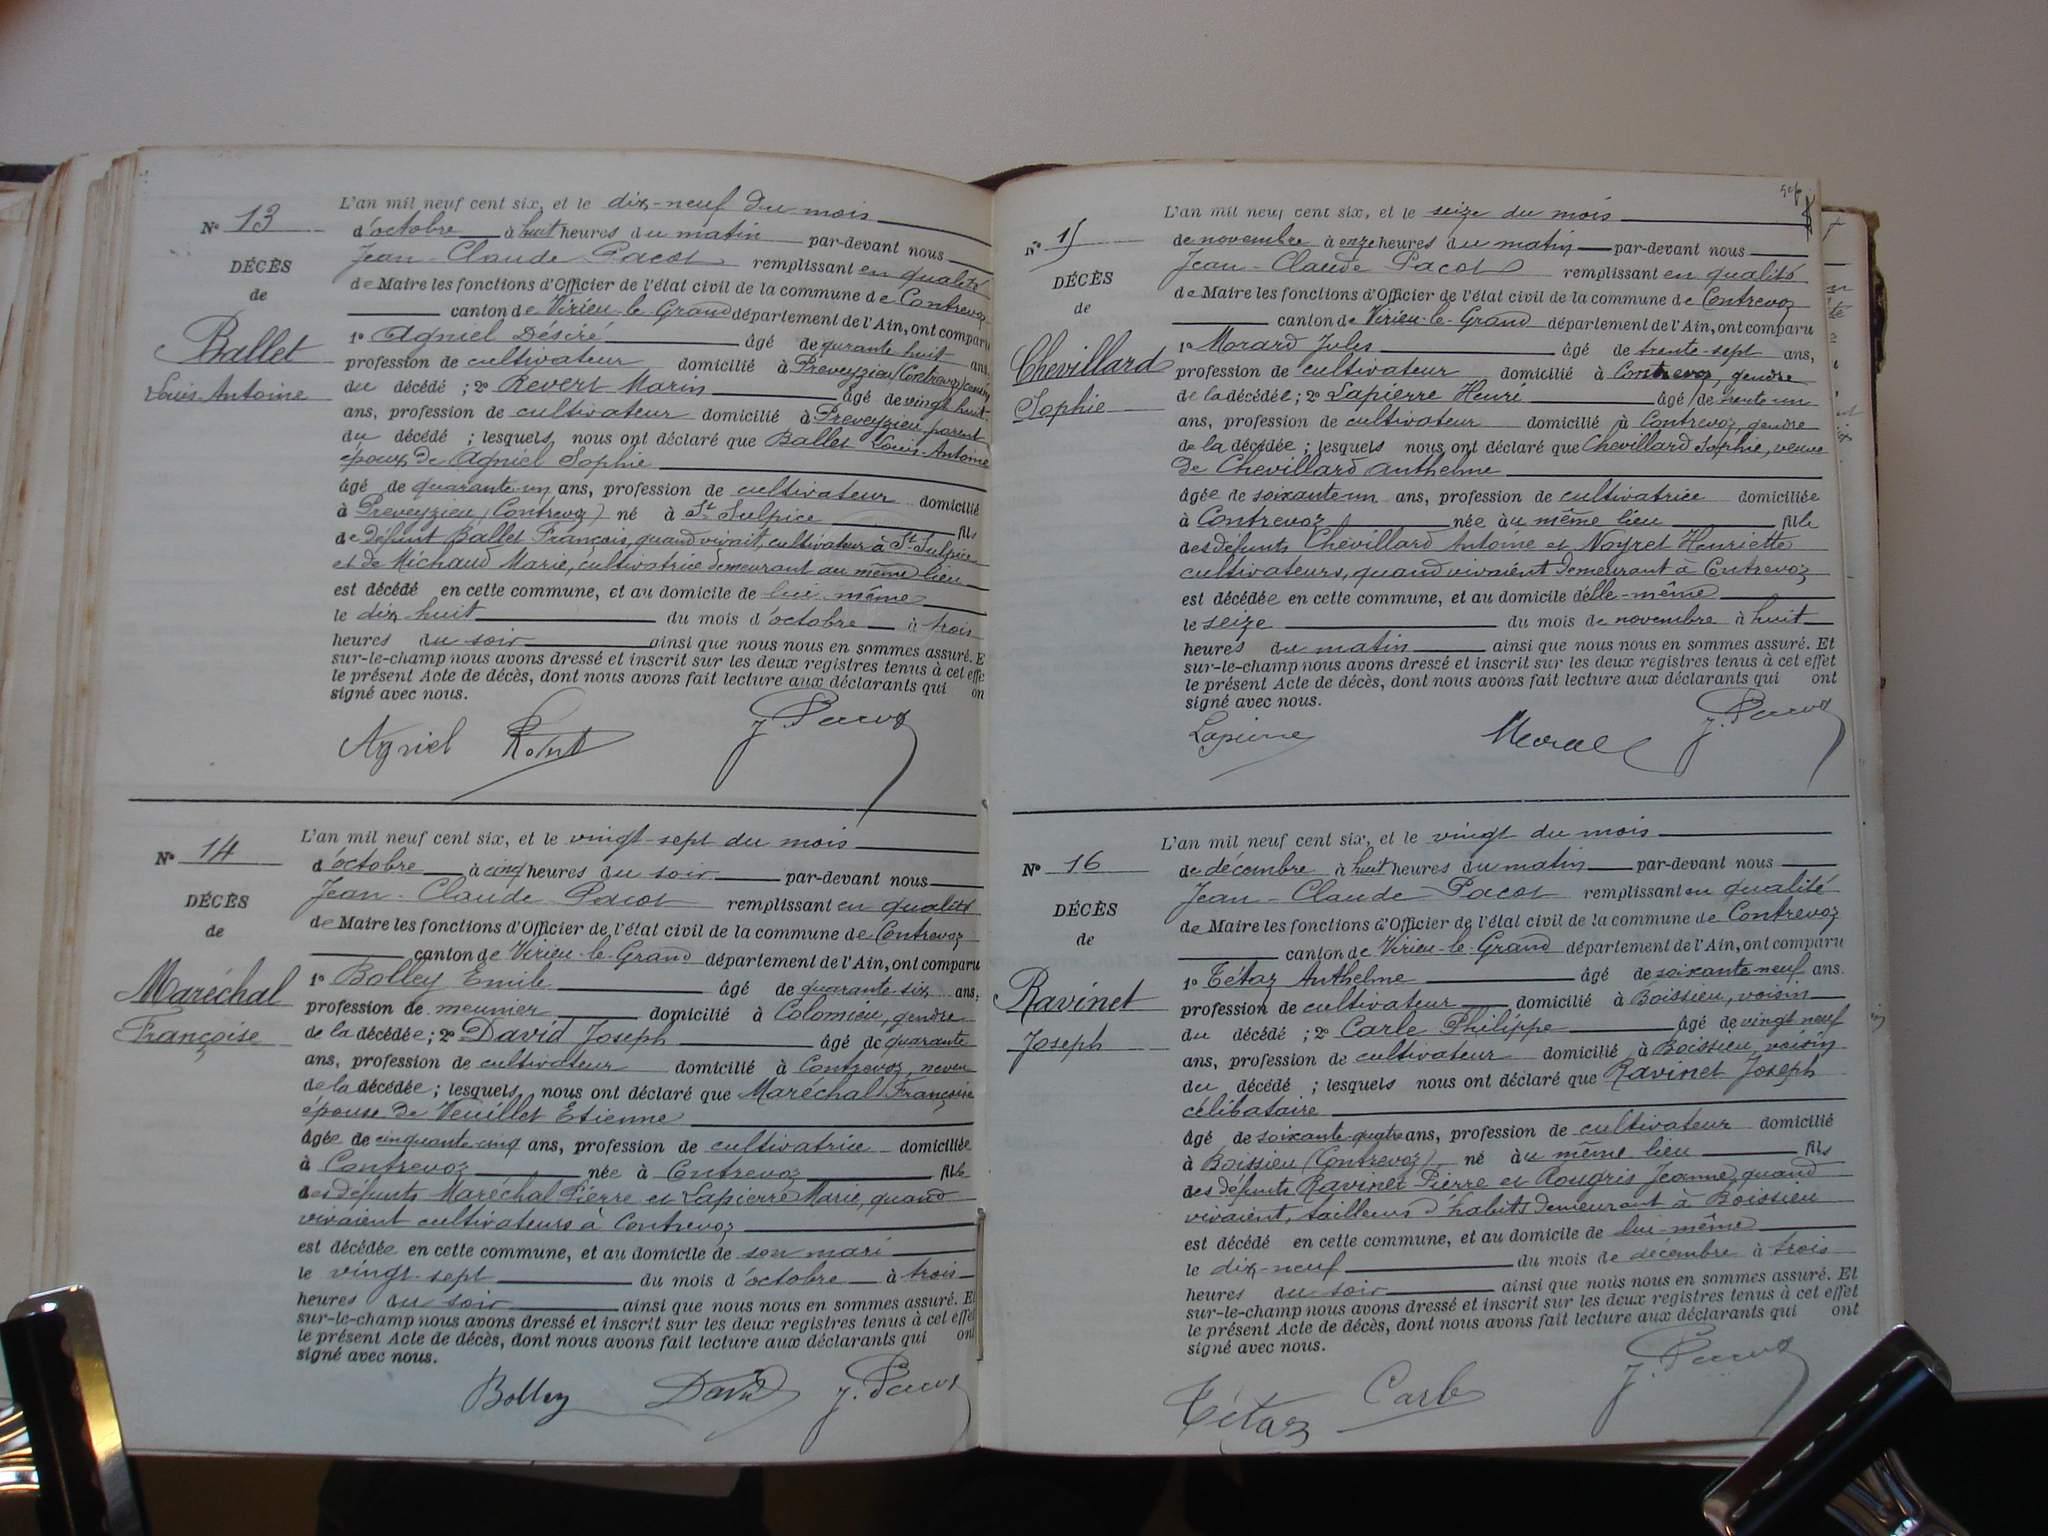 L'an mil neuf cent six, et le dix-neuf du mois
N° 13
d'octobre à huit heures du matin par-devant nous
Jean-Claude Pacot remplissant en qualité
DÉCÈS
de Maire les fonctions d'Officier de l'état civil de la commune de Contrevoz
de
canton de Virieu-le-Grand département de l'Ain, ont comparu
Ballet
Louis Antoine
1° Agniel Désiré âgé de qurante huit ans,
profession de cultivateur domicilié à Preveyzieu (Contrevoz) cousin
du décédé ; 2° Revert Marin âgé de vingt huit
ans, profession de cultivateur domicilié à Preveyzieu, parent
du décédé ; lesquels nous ont déclaré que Ballet Louis-Antoine
époux de Agniel Sophie
âgé de quarante-un ans, profession de cultivateur domicilié
à Preveyzieu (Contrevoz) né à St Sulpice fils
de défunt Ballet François, quand vivait, cultivateur à St-Sulpice
et de Michaud Marie, cultivatrice demeurant au même lieu
est décédé en cette commune, et au domicile de lui-même
le dix huit du mois d'octobre à trois
heures du soir ainsi que nous nous en sommes assuré. E
sur-le-champ nous avons dressé et inscrit sur les deux registres tenus à cet effe
le présent Acte de décès, dont nous avons fait lecture aux déclarants qui on
signé avec nous.
Agniel J. Pacot
L'an mil neuf cent six, et le vingt-sept du mois
N° 14
d'octobre à cinq heures du soir par-devant nous
Jean-Claude Pacot remplissant en qualité
DÉCÈS
de Maire les fonctions d'Officier de l'état civil de la commune de Contrevoz
de
canton de Virieu-le-Grand département de l'Ain, ont comparu
Maréchal
Françoise
1° Bolley Emile âgé de quarante-six ans,
profession de meunier domicilié à Colomieu, gendre
de la décédée ; 2° David Joseph âgé de quarante
ans, profession de cultivateur domicilié à Contrevoz, neveu
de la décédée ; lesquels nous ont déclaré que Maréchal Françoise
épouse de Veuillet Etienne
âgée de cinquante-cinq ans, profession de cultivatrice domiciliée
à Contrevoz née à Contrevoz fille
des défunts Maréchal Pierre et Lapierre Marie, quand
vivaient cultivateurs à Contrevoz
est décédée en cette commune, et au domicile de son mari
le vingt-sept du mois d'octobre à trois
heures du soir ainsi que nous nous en sommes assuré. Et
sur-le-champ nous avons dressé et inscrit sur les deux registres tenus à cet effet
le présent Acte de décès, dont nous avons fait lecture aux déclarants qui ont
signé avec nous.
Bolley David J. Pacot
L'an mil neuf cent six, et le seize du mois
N° 15
de novembre à onze heures du matin par-devant nous
Jean-Claude Pacot remplissant en qualité
DÉCÈS
de Maire les fonctions d'Officier de l'état civil de la commune de Contrevoz
de
canton de Virieu-le-Grand département de l'Ain, ont comparu
Chevillard
Sophie
1° Morard Jules âgé de trente-sept ans,
profession de cultivateur domicilié à Contrevoz, gendre
de la décédée ; 2° Lapierre Henri âgé de trente un
ans, profession de cultivateur domicilié à Contrevoz, gendre
de la décédée ; lesquels nous ont déclaré que Chevillard Sophie, veuve
de Chevillard Anthelme
âgée de soixante un ans, profession de cultivatrice domiciliée
à Contrevoz née au même lieu fille
des défunts Chevillard Antoine et Noyret Henriette
cultivateurs, quand vivaient demeurant à Contrevoz
est décédée en cette commune, et au domicile d'elle-même
le seize du mois de novembre à huit
heures du matin ainsi que nous nous en sommes assuré. Et
sur-le-champ nous avons dressé et inscrit sur les deux registres tenus à cet effet
le présent Acte de décès, dont nous avons fait lecture aux déclarants qui ont
signé avec nous.
Lapierre J. Pacot
L'an mil neuf cent six, et le vingt du mois
N° 16
de décembre à huit heures du matin par-devant nous
Jean-Claude Pacot remplissant en qualité
DÉCÈS
de Maire les fonctions d'Officier de l'état civil de la commune de Contrevoz
de
canton de Virieu-le-Grand département de l'Ain, ont comparu
Ravinet
Joseph
1° Tétaz Anthelme âgé de soixante-neuf ans.
profession de cultivateur domicilié à Boissieu, voisin
du décédé ; 2° Carle Philippe âgé de vingt neuf
ans, profession de cultivateur domicilié à Boissieu, voisin
du décédé ; lesquels nous ont déclaré que Ravinet Joseph
célibataire
âgé de soixante-quatre ans, profession de cultivateur domicilié
à Boissieu (Contrevoz) né au même lieu fils
des défunts Ravinet Pierre et Rougris Jeanne, quand
vivaient, tailleurs d'habits demeurant à Boissieu
est décédé en cette commune, et au domicile de lui-même
le dix-neuf du mois de décembre à trois
heures du soir ainsi que nous nous en sommes assuré. Et
sur-le-champ nous avons dressé et inscrit sur les deux registres tenus à cet effet
le présent Acte de décès, dont nous avons fait lecture aux déclarants qui ont
signé avec nous.
Tétaz Carle J. Pacot